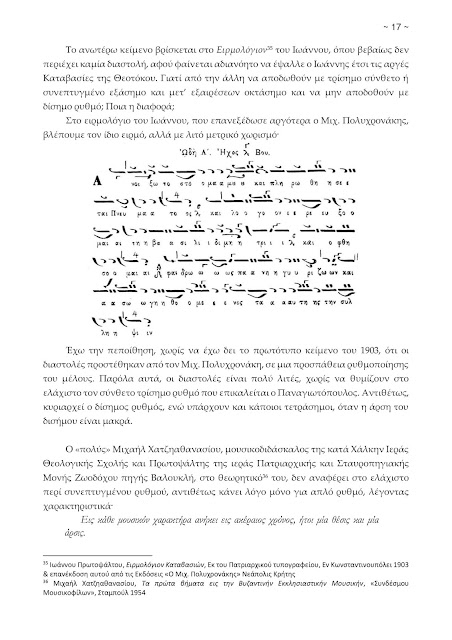 ~ 17 ~
Το ανωτέρω κείμενο βρίσκεται στο Ειρμολόγιον³⁵ του Ιωάννου, όπου βεβαίως δεν
περιέχει καμία διαστολή, αφού φαίνεται αδιανόητο να έψαλλε ο Ιωάννης έτσι τις αργές
Καταβασίες της Θεοτόκου. Γιατί από την άλλη να αποδωθούν με τρίσημο σύνθετο ή
συνεπτυγμένο εξάσημο και μετ' εξαιρέσεων οκτάσημο και να μην αποδοθούν με
δίσημο ρυθμό; Ποια η διαφορά;
Στο ειρμολόγιο του Ιωάννου, που επανεξέδωσε αργότερα ο Μιχ. Πολυχρονάκης,
βλέπουμε τον ίδιο ειρμό, αλλά με λιτό μετρικό χωρισμό·
Ὠδὴ Α΄. Ἦχος Βου.
Α νοι ξω το στο ο μα α μα α και πλη ρω θη η σε ε
ται Πνευ μα α το ος και λο ο γο ον ε ε ρε ευ ξο ο
μαι αι τη η βα α σι λι ι δι μη η τρι ι ι και ο φθη
σο ο μαι αι φαι δρω ω ω ως πα α νη η γυ υ ρι ζω ων και
α α σω ω γη η θο ο με ε ε νος τα α αυ τη ης την συλ
λη η ψι ιν
Έχω την πεποίθηση, χωρίς να έχω δει το πρωτότυπο κείμενο του 1903, ότι οι
διαστολές προστέθηκαν από τον Μιχ. Πολυχρονάκη, σε μια προσπάθεια ρυθμοποίησης
του μέλους. Παρόλα αυτά, οι διαστολές είναι πολύ λιτές, χωρίς να θυμίζουν στο
ελάχιστο τον σύνθετο τρίσημο ρυθμό που επικαλείται ο Παναγιωτόπουλος. Αντιθέτως,
κυριαρχεί ο δίσημος ρυθμός, ενώ υπάρχουν και κάποιοι τετράσημοι, όταν η άρση του
δισήμου είναι μακρά.
Ο «πολύς» Μιχαήλ Χατζηαθανασίου, μουσικοδιδάσκαλος της κατά Χάλκην Ιεράς
Θεολογικής Σχολής και Πρωτοψάλτης της ιεράς Πατριαρχικής και Σταυροπηγιακής
Μονής Ζωοδόχου πηγής Βαλουκλή, στο θεωρητικό³⁶ του, δεν αναφέρει στο ελάχιστο
περί συνεπτυγμένου ρυθμού, αντιθέτως κάνει λόγο μόνο για απλό ρυθμό, λέγοντας
χαρακτηριστικά·
Εις κάθε μουσικόν χαρακτήρα ανήκει εις ακέραιος χρόνος, ήτοι μία θέσις και μία
άρσις.
³⁵ Ιωάννου Πρωτοψάλτου, Ειρμολόγιον Καταβασιών, Εκ του Πατριαρχικού τυπογραφείου, Εν Κωνσταντινουπόλει 1903
& επανέκδοση αυτού από τις Εκδόσεις «Ο Μιχ. Πολυχρονάκης» Νεάπολις Κρήτης
³⁶ Μιχαήλ Χατζηαθανασίου, Τα πρώτα βήματα εις την Βυζαντινήν Εκκλησιαστικήν Μουσικήν, «Συνδέσμου
Μουσικοφίλων», Σταμπούλ 1954